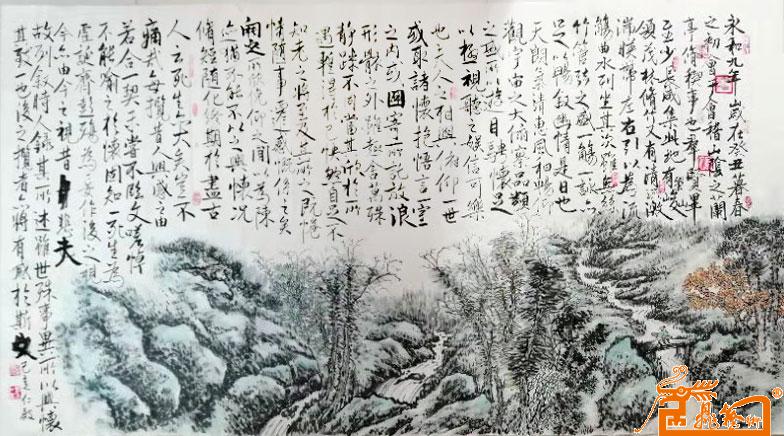 永和九年歲在癸丑暮春
之初會于會稽山陰之蘭
亭脩禊事也羣賢畢
至少長咸集此地有崇山峻
領茂林脩竹又有清流激
湍暎帶左右引以為流
觴曲水列坐其次雖無絲
竹管弦之盛一觴一詠亦
足以暢叙幽情是日也
天朗氣清惠風和暢仰
觀宇宙之大俯察品類
之盛所以遊目騁懷足
以極視聽之娛信可樂
也夫人之相與俯仰一世
或取諸懷抱悟言一室
之內或因寄所託放浪
形骸之外雖趣舍萬殊
靜躁不同當其欣於所
遇暫得於己快然自足不
知老之將至及其所之既惓
情隨事遷感慨係之矣
向之所欣俯仰之間以為陳
迹猶不能不以之興懷況
脩短隨化終期於盡古
人云死生亦大矣豈不
痛哉每攬昔人興感之由
若合一契未嘗不臨文嗟悼
不能喻之於懷固知一死生為
虛誕齊彭殤為妄作後之視
今亦由今之視昔悲夫
故列叙時人錄其所述雖世殊事異所以興懷
其致一也後之攬者亦將有感於斯文
己亥仁毅